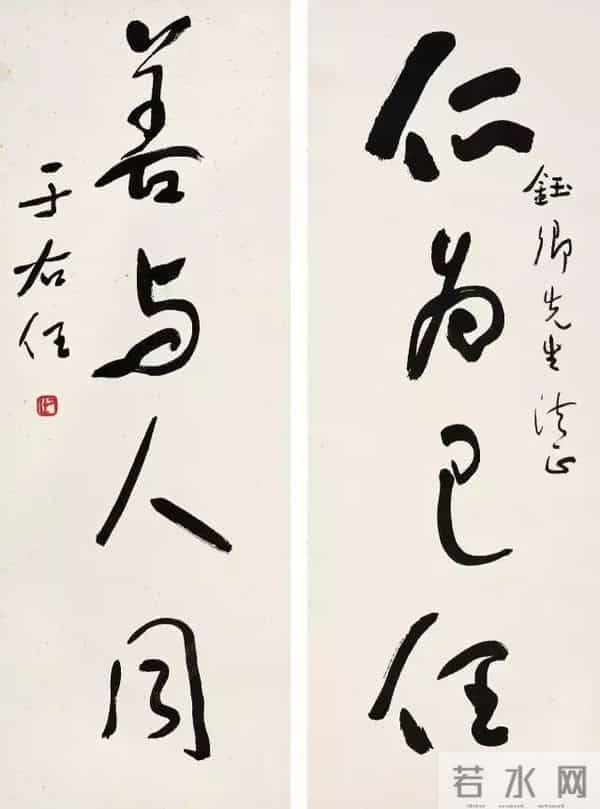 鈺卿先生法正
仁為己任
善与人同
于右任
若水网